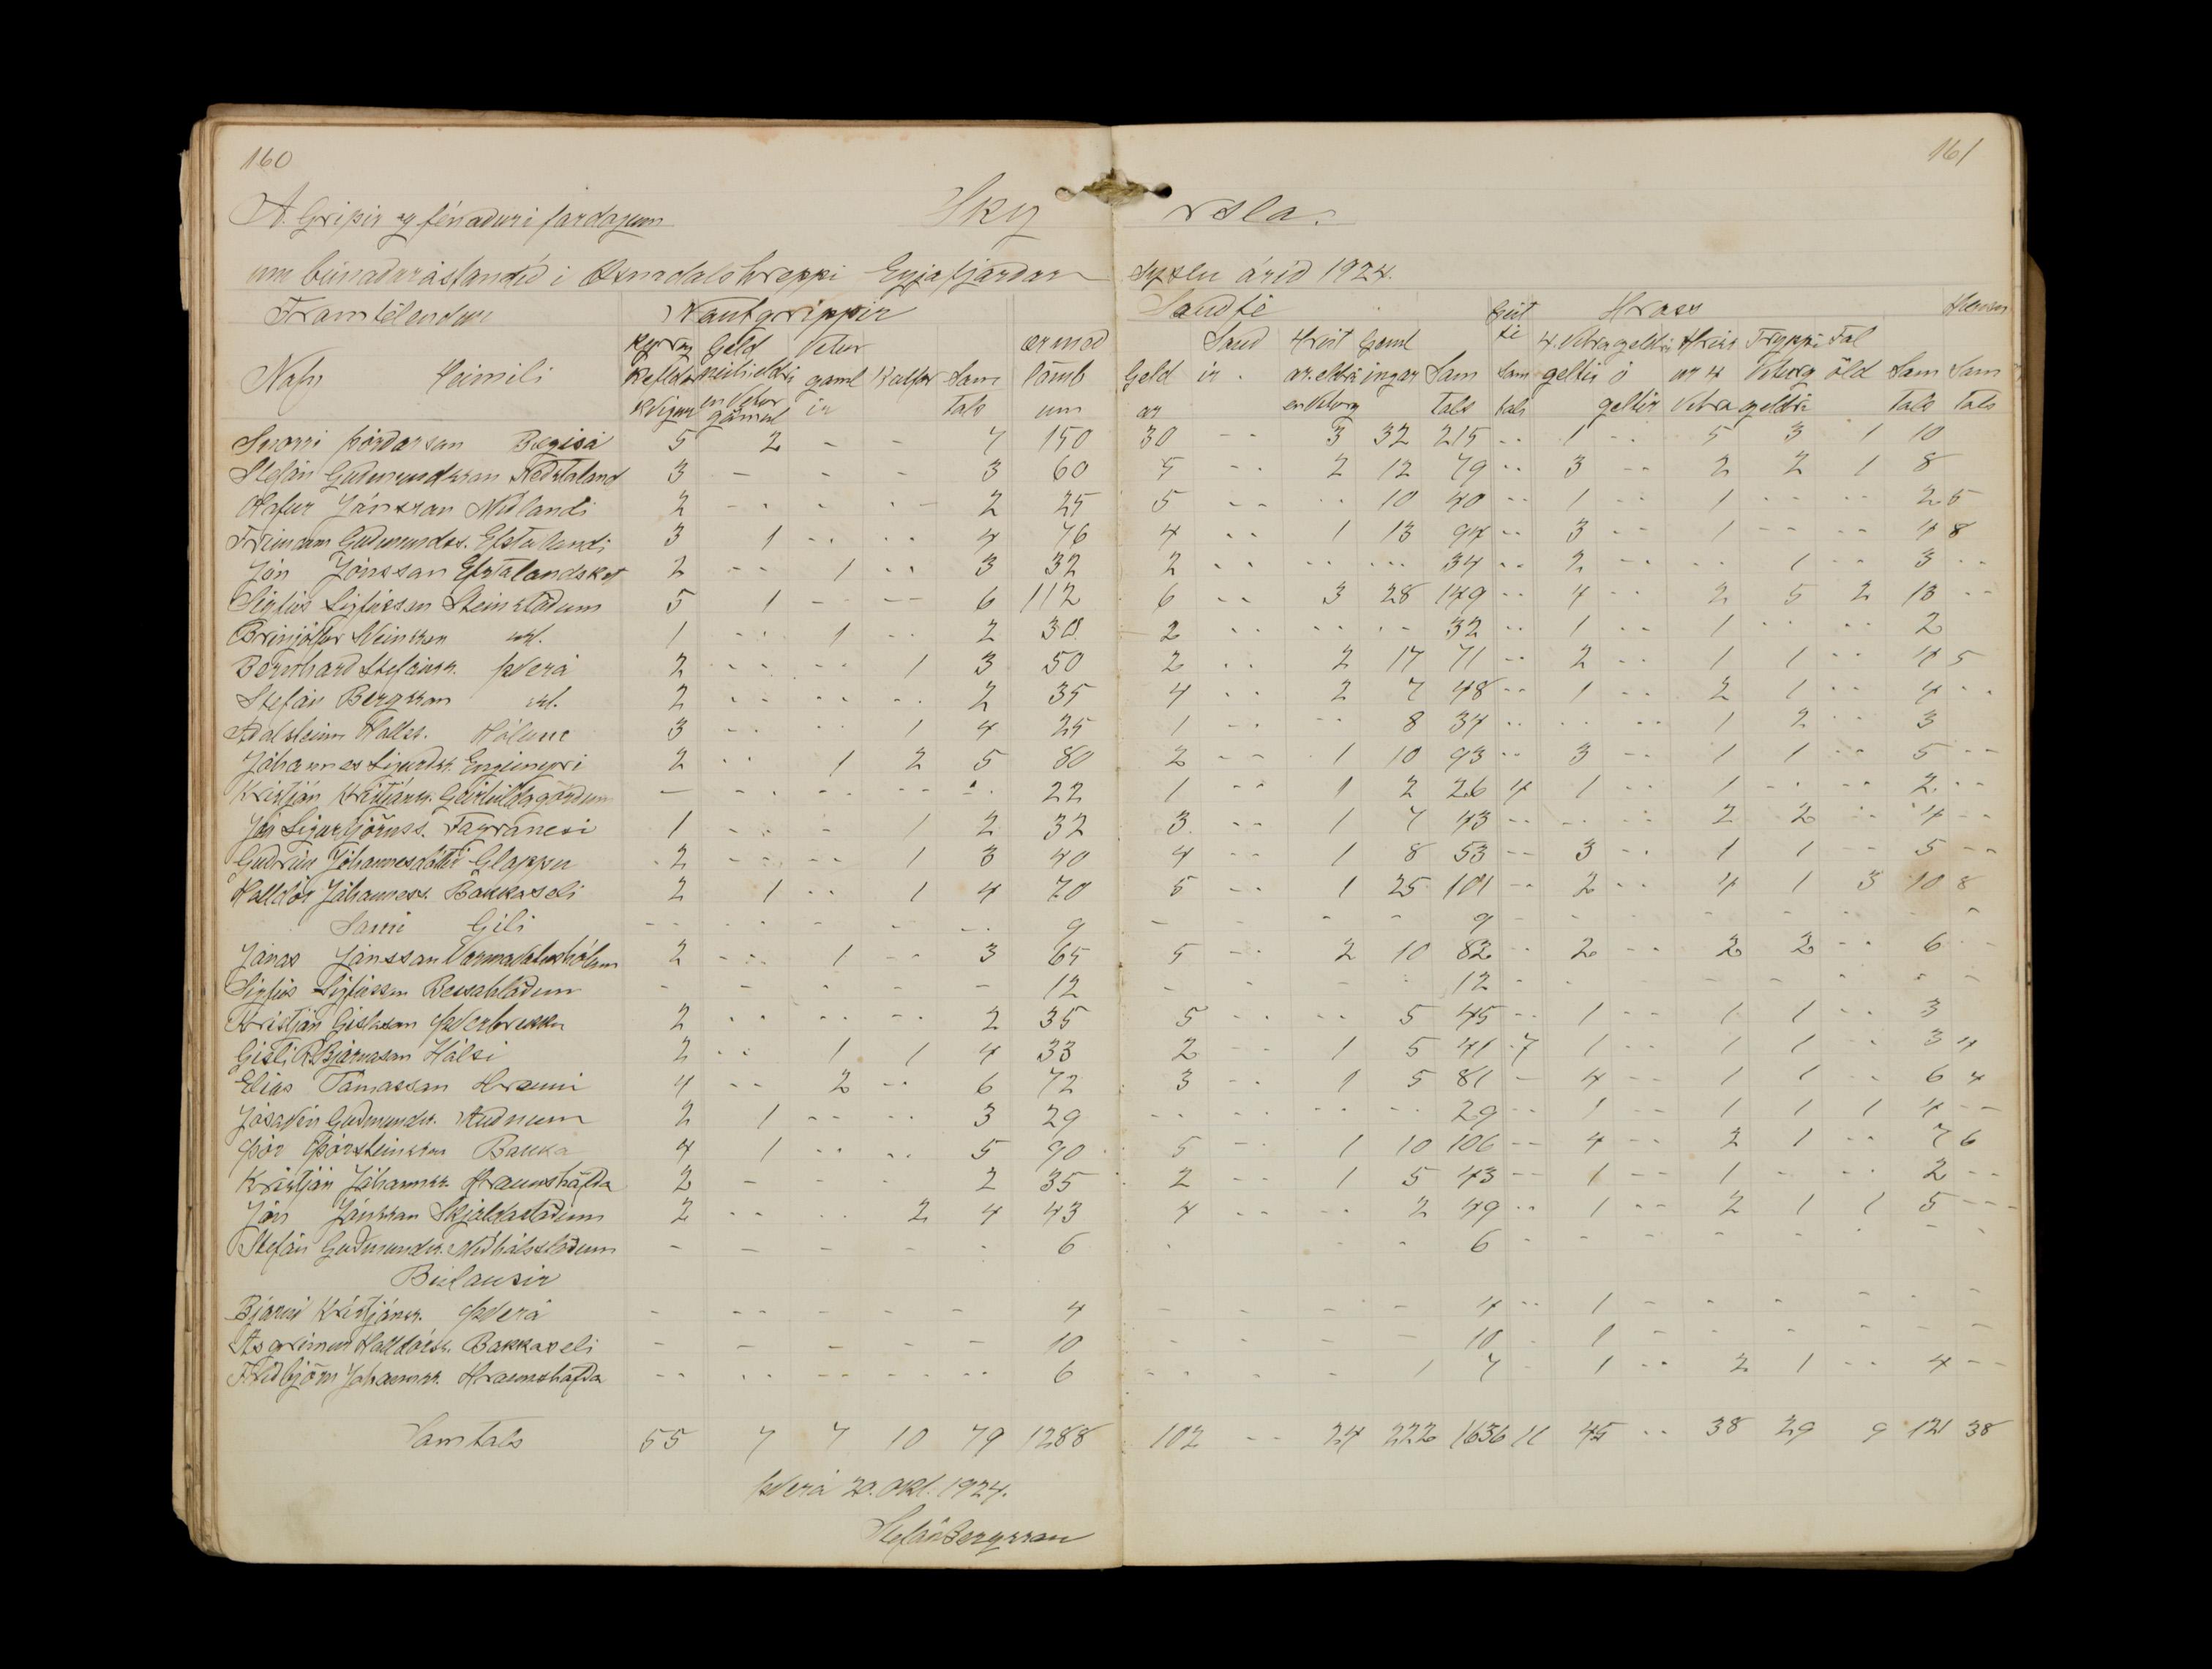 160
161
A. Gripir og fénaður í fardögum
Skýrsla.
um búnaðarástandið í Öxnadalshreppi Eyjafjarðar sýslu árið 1924.
Framtélendur Nautgrippir Sauðfé Geit Hross Hænsn
Kýr og Geld Vetur ær með Sauð Hrút Geml fé 4. vetra geldri Hriss Tryppi Fol
Nafn Heimili Kefldar neiti eldri gaml Kálfar Sam lömb Geld ir. ar. eldri ingar Sam Sam geltir ó ar 4 Veturg öld Sam Sam
Kvígur en Vetur gömul ir tals um ar en Veturg tals tals geltir Vetra geldri tals tals
Snorri Þórðarsan Bægisá 5 2 - - 7 150 30 -- 3 32 215 -- 1 -- 5 3 1 10
Stefán Guðmundssan Neðstaland 3 - - - 3 60 5 -- 2 12 79 -- 3 -- 2 2 1 8
Hafur Jónssan Miðlandi 2 - - - - 2 25 5 -- -- 10 40 -- 1 -- 1 -- -- 2 5
Frímann Guðmundss. Efstalandi 3 1 -- -- 4 76 4 -- 1 13 94 -- 3 -- 1 -- -- 4 8
Jón Jónssan Efstalandskot 2 -- 1 -- 3 32 2 -- -- -- 34 -- 2 -- -- 1 -- 3 --
Sigfús Sigfússan Steinstöðum 5 1 -- -- 6 112 6 -- 3 28 149 -- 4 -- 2 5 2 13 --
Brinjólfur Sveinssan sst. 1 -- 1 -- 2 30 2 -- -- -- 32 -- 1 -- 1 -- -- 2
Bernharð Stefánss. Þverá 2 -- -- 1 3 50 2 -- 2 17 71 -- 2 -- 1 1 -- 4 5
Stefán Bergssan sst. 2 -- -- -- 2 35 4 -- 2 7 48 -- 1 -- 2 1 -- 4 --
Aðalsteinn Hallss. Hólum 3 -- -- 1 4 25 1 -- -- 8 34 -- -- -- 1 2 -- 3
Jóhannes Sigurðss. Engimýri 2 -- 1 2 5 80 2 -- 1 10 93 -- 3 -- 1 1 -- 5 --
Kristján Kristjánss. Geirhildagörðum - -- -- -- -- 22 1 -- 1 2 26 4 1 -- 1 -- -- 2 --
Jón Sigurbjörnss. Fagranesi 1 -- - 1 2 32 3 -- 1 7 43 -- -- -- 2 2 -- 4 --
Guðrún Jóhannesdóttir Gloppu 2 -- -- 1 3 40 4 -- 1 8 53 -- 3 -- 1 1 -- 5 --
Halldór Jóhanness. Bakkaseli 2 1 -- 1 4 70 5 -- 1 25 101 -- 2 -- 4 1 3 10 8
Sami Gili -- - - - -- 9 - - - - 9 - - - - - - - -
Jónas Jónssan Varmavatnshólum 2 -- 1 -- 3 65 5 -- 2 10 82 -- 2 -- 2 2 -- 6 --
Sigfús Sigfússan Bessahlöðum - - - - - 12 - - - - 12 - - - - - - - -
Kristján Gíslasan Þverbrekku 2 -- -- -- 2 35 5 -- -- 5 45 -- 1 -- 1 1 -- 3
Gísli R. Bjarnasan Hálsi 2 -- 1 1 4 33 2 -- 1 5 41 7 1 -- 1 1 -- 3 4
Elías Tómassan Hrauni 4 -- 2 -- 6 72 3 -- 1 5 81 - 4 -- 1 1 -- 6 4
Jósavin Guðmundss. Auðnum 2 1 -- -- 3 29 -- -- -- -- 29 -- 1 -- 1 1 1 4 --
Þór Þórsteinssan Bakka 4 1 -- -- 5 90 5 -- 1 10 106 -- 4 -- 2 1 -- 7 6
Kristján Jóhannss. Hraunshöfða 2 - - - 2 35 2 -- 1 5 43 -- 1 -- 1 - -- 2 --
Jón Jónssan Skjaldastöðum 2 -- -- 2 4 43 4 -- -- 2 49 -- 1 -- 2 1 1 5 --
Stefán Guðmundss. Miðhálsstöðum - - - - - 6 - - - - 6 - - - - - - - -
Búlausir
Bjarni Kristjánss. Þverá - -- - - - 4 - - - - 4 -- 1 - - - - - -
Ásgrímur Halldórss. Bakkaseli - - - - - 10 - - - - 10 - 1 - - - - - -
Friðbjörn Jóhannss. Hraunshöfða -- -- -- -- -- 6 -- - - 1 7 - 1 -- 2 1 -- 4 --
Samtals 55 7 7 10 79 1288 102 -- 24 222 1636 11 45 -- 38 29 9 121 38
Þverá 20. okt. 1924.
Stefán Bergssan